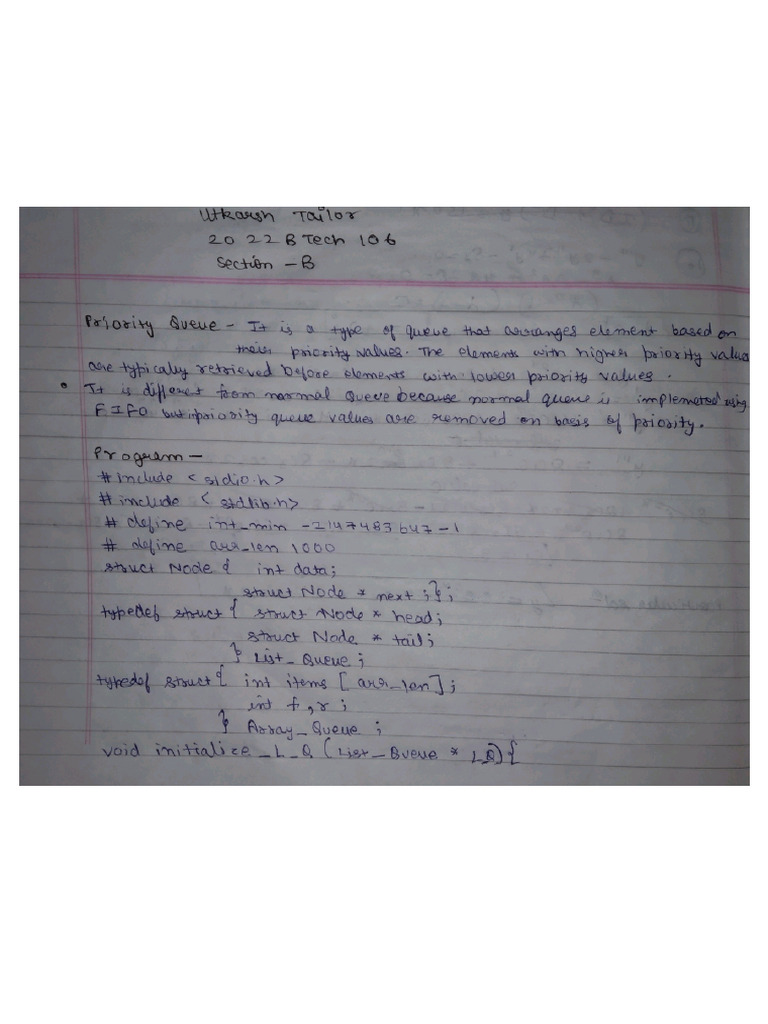 Utkarsh Tailor
2022BTech106
Section - B
Priority Queue - It is a type of queue that arranges element based on
their priority values. The elements with higher priority values
are typically retrieved before elements with lower priority values.
• It is different from normal queue because normal queue is implemeted using
FIFO but priority queue values are removed on basis of priority.
Program -
# include <stdio.h>
# include <stdlib.h>
# define int_min -2147483647-1
# define arr_len 1000
struct Node { int data;
struct Node * next ;};
typedef struct { struct Node * head;
struct Node * tail;
} List_Queue ;
typedef struct { int items [arr_len];
int f,r ;
} Array_Queue ;
void initialize_L_Q (List_Queue * LQ){